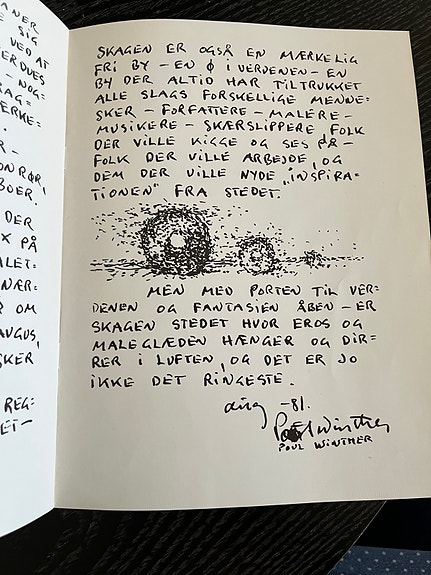 ANER
SIG
VED AT
ERDUES
- NOG-
AG=
ÆRKE=
R -
ONDRØR,
BOER.
DER
X PÅ
ALET=
NÆR=
R OM
AVGUS,
SKER
REG=
ET-
SKAGEN ER OGSÅ EN MÆRKELIG
FRI BY - EN Ø I VERDENEN - EN
BY DER ALTID HAR TILTRUKKET
ALLE SLAGS FORSKELLIGE MENNE=
SKER - FORFATTERE - MALERE -
MUSIKERE - SKÆRSLIPPERE FOLK
DER VILLE KIGGE OG SES PÅ -
FOLK DER VILLE ARBEJDE, OG
DEM DER VILLE NYDE „INSPIRA=
TIONEN" FRA STEDET.
MEN MED PORTEN TIL VER=
DENEN OG FANTASIEN ÅBEN - ER
SKAGEN STEDET HVOR EROS OG
MALEGLÆDEN HÆNGER OG DIR=
RER I LUFTEN, OG DET ER JO
IKKE DET RINGESTE.
aug -81.
Poul Winther
POUL WINTHER